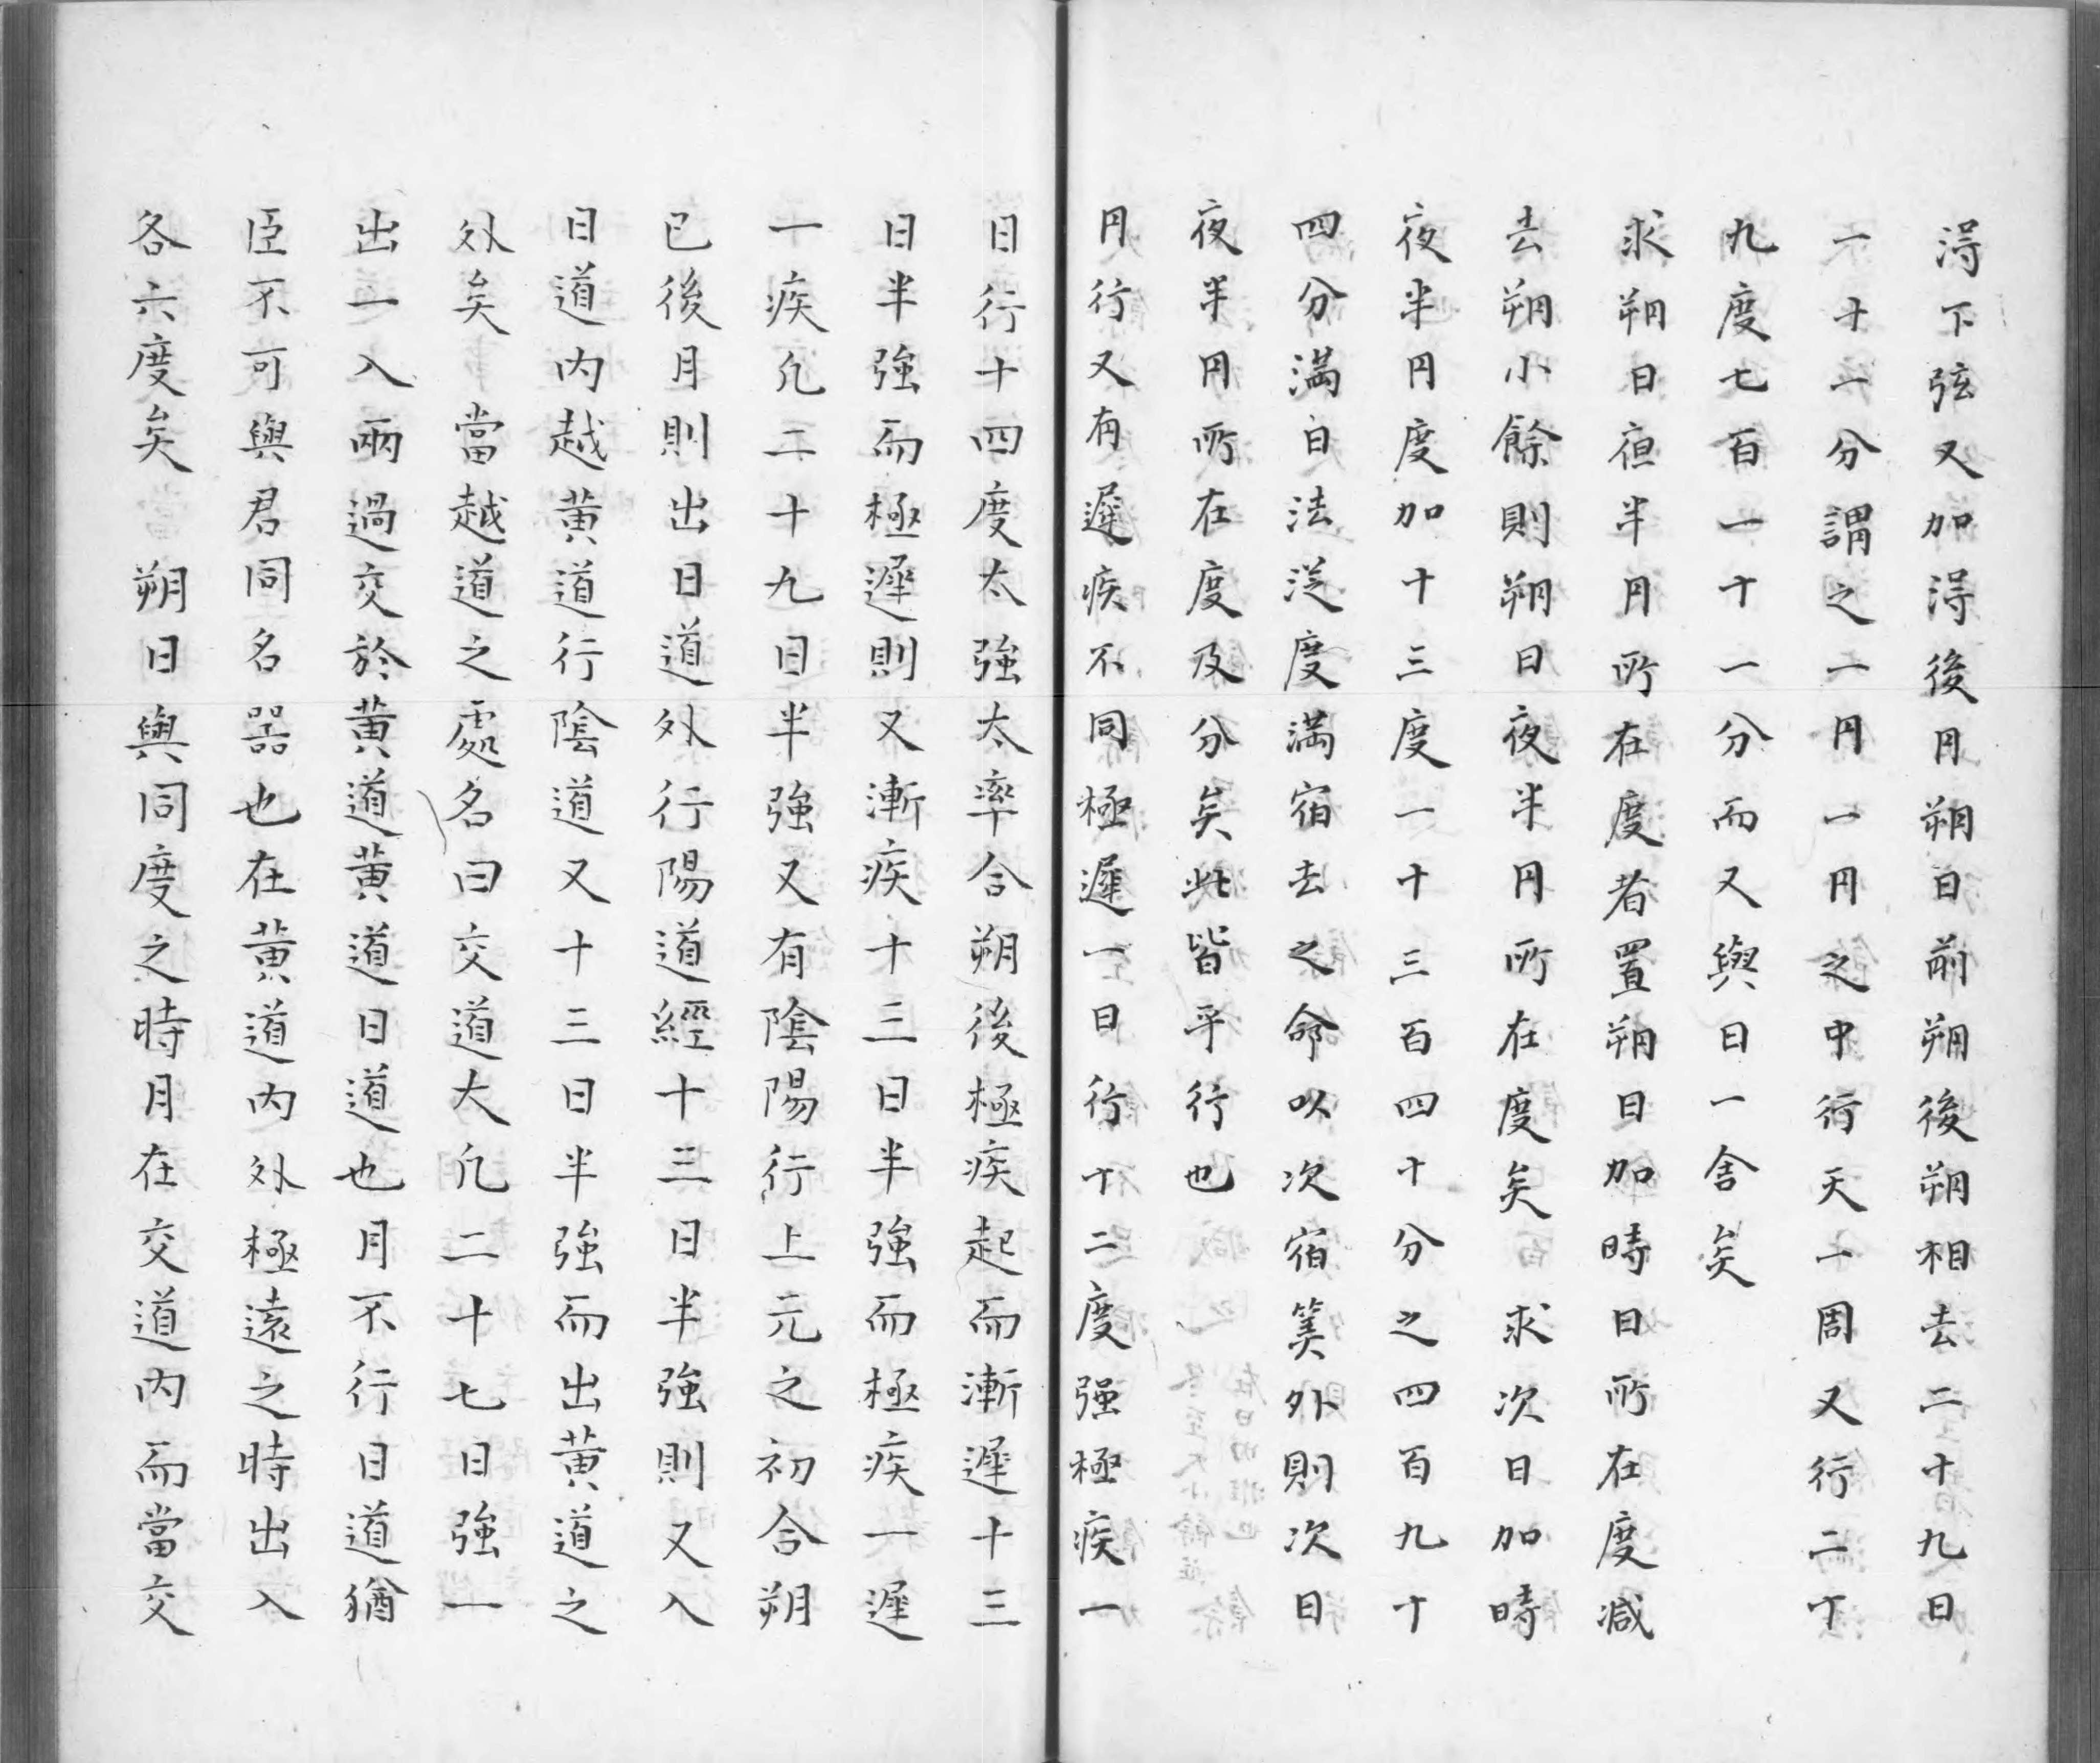 淂下弦又加淂後円朔日前朔後朔相去二十九日
一十一分謂之一円一円之中行天一周又行二十
九度七百一十一分而又與日一舍矣
求朔日夜半円所在度者置朔日加時日所在度减
去朔小餘則朔日夜半円所在度矣 求次日加時
夜半円度加十三度一十三百四十分之四百九十
四分満日法從度満宿去之命以次宿筭外則次日
夜半円所在度及分矣此皆平行也
円行又有遲疾不同極遲一日行十二度强極疾一
日行十四度太強太率合朔後極疾起而漸遲十三
日半強而極遲則又漸疾十三日半強而極疾一遲
一疾凢二十九日半強又有陰陽行上元之初合朔
已後月則出日道外行陽道經十三日半強則又入
日道内越黄道行陰道又十三日半強而出黄道之
外矣 當越道之處名曰交道大凢二十七日強一
出一入兩過交於黄道黄道日道也月不行日道猶
臣不可與君同名器也在黄道内外極遠之時出入
各六度矣 朔日與同度之時月在交道内而當交